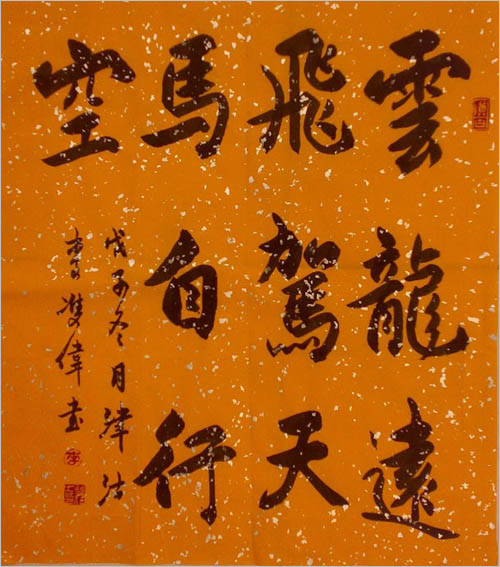 雲龍遠
飛駕天
馬自行
空
戊子冬月津沽
李雙偉书
李